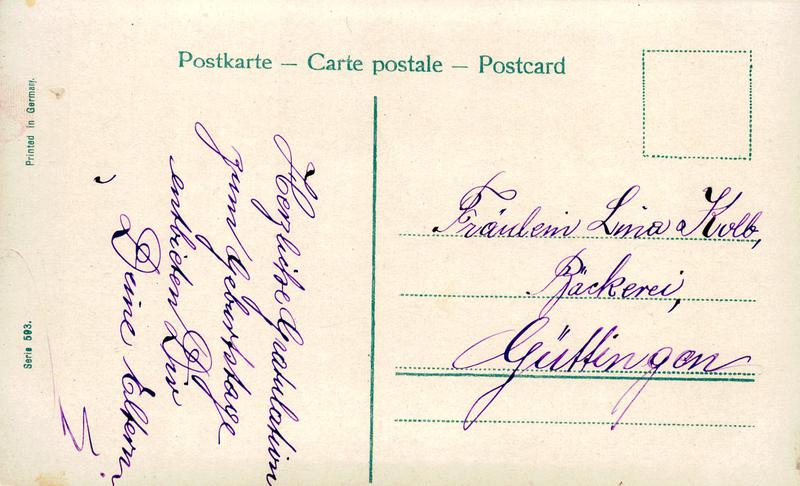 Postkarte — Carte postale — Postcard
Printed in Germany.
Serie 593.
Herzliche Gratulation
zum Geburtstage
entbieten Dir
Deine Eltern.
Fräulein Lina Kolb,
Bäckerei,
Güttingen